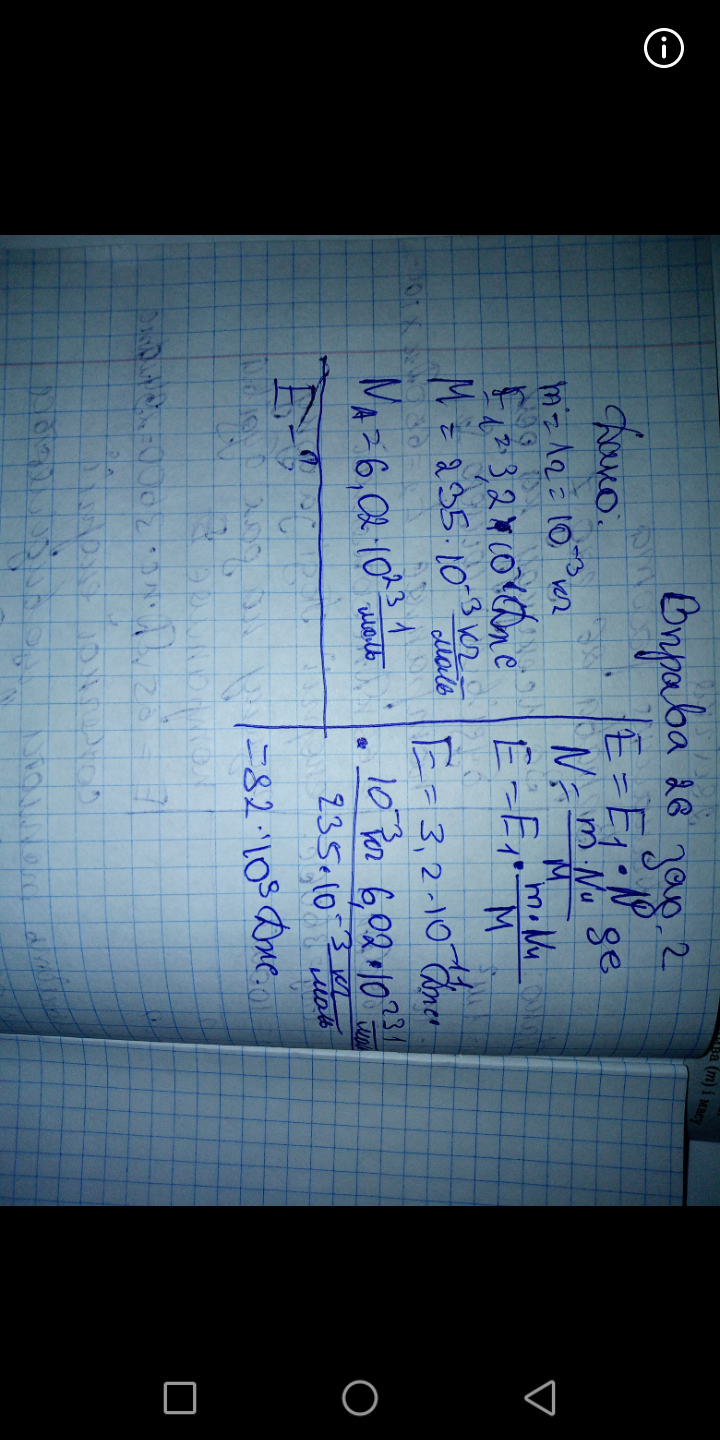 Вправа 26 зар. 2
Дано:
m = 1г = 10⁻³ кг
E₁ = 3,2 · 10⁻¹¹ Дж
M = 235 · 10⁻³ кг/моль
N_A = 6,02 · 10²³ 1/моль
E - ?
E = E₁ · N, де
N = m · N_A / M
E = E₁ · m · N_A / M
E = 3,2 · 10⁻¹¹ Дж ·
· 10⁻³ кг 6,02 · 10²³ 1/моль / 235 · 10⁻³ кг/моль
= 82 · 10⁹ Дж.